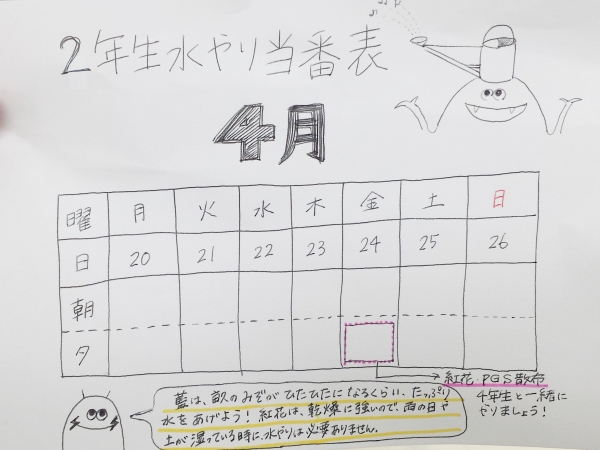 2年生水やり当番表
4月
曜 月 火 水 木 金 土 日
日 20 21 22 23 24 25 26
朝
夕
紅花・PGS散布
4年生と一緒に
やりましょう！
藍は、畝のみぞがひたひたになるくらい、たっぷり
水をあげよう！紅花は、乾燥に強いので、雨の日や
土が湿っている時に、水やりは必要ありません。